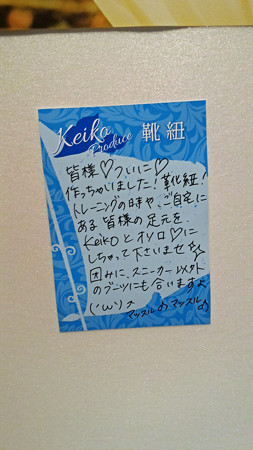 Keiko
Produce 靴紐
皆様♡ついに♡
作っちゃいました！靴紐！
トレーニングの時や、ご自宅に
ある皆様の足元を
Keikoとオソロ♡に
しちゃって下さいませ
因みに、スニーカー以外
のブーツにも合いますよ
('ω')ノ マッスル♪マッスル♪